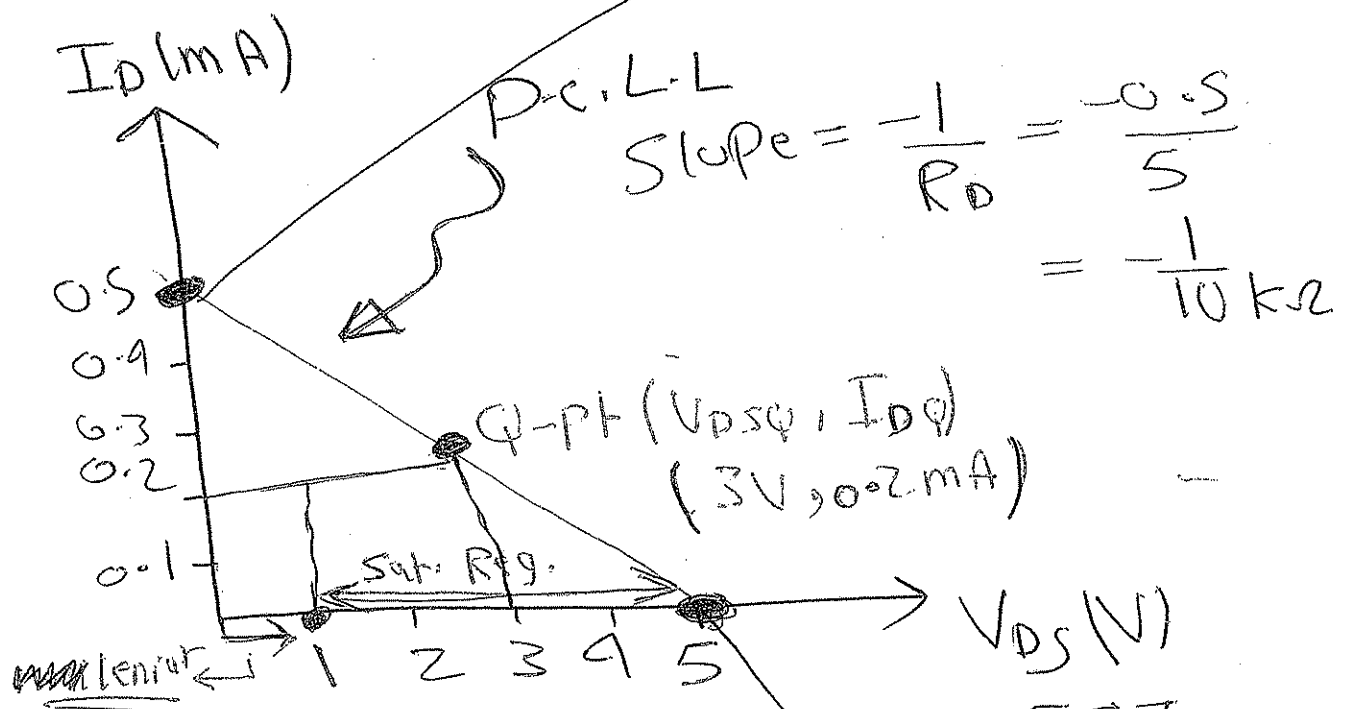 ID (mA)
D.C. L.L
Slope = -1/RD = -0.5/5
= -1/10 kΩ
0.5
0.4
0.3
0.2
0.1
Q-pt (VDSQ, IDQ)
(3V, 0.2 mA)
Sat. Reg.
1 2 3 4 5
VDS (V)